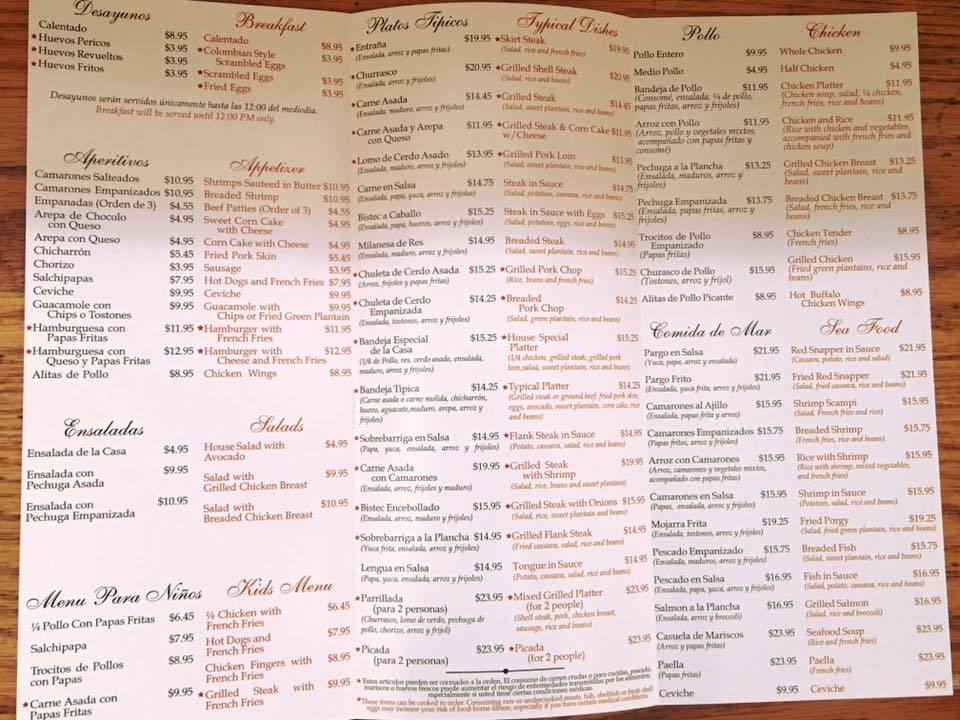 Desayunos
Calentado $8.95
*Huevos Pericos $3.95
*Huevos Revueltos $3.95
*Huevos Fritos $3.95
Breakfast
Calentado $8.95
*Colombian Style
Scrambled Eggs $3.95
*Scrambled Eggs $3.95
*Fried Eggs $3.95
Desayunos serán servidos únicamente hasta las 12:00 del mediodia.
Breakfast will be served until 12:00 PM only.
Aperitivos
Camarones Salteados $10.95
Camarones Empanizados $10.95
Empanadas (Orden de 3) $4.55
Arepa de Chocolo $4.95
con Queso
Arepa con Queso $4.95
Chicharrón $5.45
Chorizo $3.95
Salchipapas $7.95
Ceviche $9.95
Guacamole con $9.95
Chips o Tostones
*Hamburguesa con $11.95
Papas Fritas
*Hamburguesa con $12.95
Queso y Papas Fritas
Alitas de Pollo $8.95
Appetizer
Shrimps Sauteed in Butter $10.95
Breaded Shrimp $10.95
Beef Patties (Order of 3) $4.55
Sweet Corn Cake $4.95
with Cheese
Corn Cake with Cheese $4.95
Fried Pork Skin $5.45
Sausage $3.95
Hot Dogs and French Fries $7.95
Ceviche $9.95
Guacamole with $9.95
Chips or Fried Green Plantain
*Hamburger with $11.95
French Fries
*Hamburger with $12.95
Cheese and French Fries
Chicken Wings $8.95
Ensaladas
Ensalada de la Casa $4.95
Ensalada con $9.95
Pechuga Asada
Ensalada con $10.95
Pechuga Empanizada
Salads
House Salad with $4.95
Avocado
Salad with $9.95
Grilled Chicken Breast
Salad with $10.95
Breaded Chicken Breast
Menu Para Niños
¼ Pollo Con Papas Fritas $6.45
Salchipapa $7.95
Trocitos de Pollos $8.95
con Papas
*Carne Asada con $9.95
Papas Fritas
Kids Menu
¼ Chicken with $6.45
French Fries
Hot Dogs and $7.95
French Fries
Chicken Fingers with $8.95
French Fries
*Grilled Steak with $9.95
French Fries
Platos Tipicos
*Entraña $19.95
(Ensalada, arroz y papas fritas)
*Churrasco $20.95
(Ensalada, arroz y frijoles)
*Carne Asada $14.45
(Ensalada, maduro, arroz y frijoles)
*Carne Asada y Arepa $11.95
con Queso
*Lomo de Cerdo Asado $13.95
(Ensalada, maduro, arroz y frijoles)
Carne en Salsa $14.75
(Ensalada, papa, yuca, arroz y frijoles)
Bistec a Caballo $15.25
(Ensalada, papa, huevos, arroz y frijoles)
Milanesa de Res $14.95
(Ensalada, maduro, arroz y frijoles)
*Chuleta de Cerdo Asada $15.25
(Arroz, frijoles y papas fritas)
*Chuleta de Cerdo $14.25
Empanizada
(Ensalada, tostones, arroz y frijoles)
*Bandeja Especial $15.25
de la Casa
(1/4 de Pollo, res, cerdo asado, ensalada,
maduro, arroz y frijoles)
*Bandeja Tipica $14.25
(Carne asada o carne molida, chicharrón,
huevo, aguacate,maduro, arepa, arroz y
frijoles)
*Sobrebarriga en Salsa $14.95
(Papa, yuca, ensalada, arroz y frijoles)
*Carne Asada $19.95
con Camarones
(Ensalada, arroz, frijoles y maduro)
*Bistec Encebollado $15.95
(Ensalada, arroz, maduro y frijoles)
*Sobrebarriga a la Plancha $14.95
(Yuca frita, ensalada, arroz y frijoles)
Lengua en Salsa $14.95
(Papa, yuca, ensalada, arroz y frijoles)
*Parrillada $23.95
(para 2 personas)
(Churrasco, lomo de cerdo, pechuga de
pollo, chorizo, arroz y frijol)
*Picada $23.95
(para 2 personas)
Typical Dishes
*Skirt Steak $19.95
(Salad, rice and french fries)
*Grilled Shell Steak $20.95
(Salad, rice and beans)
*Grilled Steak $14.45
(Salad, sweet plantain, rice and beans)
*Grilled Steak & Corn Cake $11.95
w/Cheese
*Grilled Pork Loin $13.95
(Salad, sweet plantain, rice and beans)
Steak in Sauce $14.75
(Salad, potatoes, cassava, rice and beans)
Steak in Sauce with Eggs $15.25
(Salad, potatoes, eggs, rice and beans)
Breaded Steak $14.95
(Salad, sweet plantain, rice and beans)
*Grilled Pork Chop $15.25
(Rice, beans and french fries)
*Breaded $14.25
Pork Chop
(Salad, green plantain, rice and beans)
*House Special $15.25
Platter
(1/4 chicken, grilled steak, grilled pork
loin,salad, sweet plantain, rice and beans)
*Typical Platter $14.25
(Grilled steak or ground beef, fried pork skin,
eggs, avocado, sweet plantain, corn cake, rice
and beans)
*Flank Steak in Sauce $14.95
(Potato, cassava, salad, rice and beans)
*Grilled Steak $19.95
with Shrimp
(Salad, rice, beans and sweet plantain)
*Grilled Steak with Onions $15.95
(Salad, rice, sweet plantain and beans)
*Grilled Flank Steak $14.95
(Fried cassava, salad, rice and beans)
Tongue in Sauce $14.95
(Potato, cassava, salad, rice and beans)
*Mixed Grilled Platter $23.95
(for 2 people)
(Shell steak, pork, chicken breast,
sausage, rice and beans)
*Picada $23.95
(for 2 people)
* Estos artículos pueden ser cocinados a la orden. El consumo de carnes crudas o poco cocidas, pescado,
mariscos o huevos frescos puede aumentar el riesgo de enfermedades transmitidas por los alimentos,
especialmente si usted tiene ciertas condiciones médicas.
*These items can be cooked to order. Consuming raw or undercooked meats, fish, shellfish or fresh shell
eggs may increase your risk of food-borne illness, especially if you have certain medical conditions.
Pollo
Pollo Entero $9.95
Medio Pollo $4.95
Bandeja de Pollo $11.95
(Consomé, ensalada, ¼ de pollo,
papas fritas, arroz y frijoles)
Arroz con Pollo $11.95
(Arroz, pollo y vegetales mixtos,
acompañado con papas fritas y
consomé)
Pechuga a la Plancha $13.25
(Ensalada, maduros, arroz y
frijoles)
Pechuga Empanizada $13.75
(Ensalada, papas fritas, arroz y
frijoles)
Trocitos de Pollo $8.95
Empanizado
(Papas fritas)
Churasco de Pollo $15.95
(Tostones, arroz y frijol)
Alitas de Pollo Picante $8.95
Chicken
Whole Chicken $9.95
Half Chicken $4.95
Chicken Platter $11.95
(Chicken soup, salad, ¼ chicken,
french fries, rice and beans)
Chicken and Rice $11.95
(Rice with chicken and vegetables,
accompanied with french fries and
chicken soup)
Grilled Chicken Breast $13.25
(Salad, sweet plantain, rice and
beans)
Breaded Chicken Breast $13.75
(Salad, french fries, rice and
beans)
Chicken Tender $8.95
(French fries)
Grilled Chicken $15.95
(Fried green plantains, rice and
beans)
Hot Buffalo $8.95
Chicken Wings
Comida de Mar
Pargo en Salsa $21.95
(Yuca, papa, y ensalada)
Pargo Frito $21.95
(Ensalada, yuca frita, arroz y frijoles)
Camarones al Ajillo $15.95
(Ensalada, papas frita y arroz)
Camarones Empanizados $15.75
(Papas fritas, arroz y frijoles)
Arroz con Camarones $15.95
(Arroz, camarones y vegetales mixtos,
acompañado con papas fritas)
Camarones en Salsa $15.95
(Papas, ensalada, arroz y frijoles)
Mojarra Frita $19.25
(Ensalada, tostones, arroz y frijoles)
Pescado Empanizado $15.75
(Ensalada, maduros, arroz y frijoles)
Pescado en Salsa $16.95
(Ensalada, papa, yuca, arroz y frijoles)
Salmon a la Plancha $16.95
(Ensalada, arroz y broccoli)
Casuela de Mariscos $23.95
(Arroz y papas fritas)
Paella $23.95
(Papas fritas)
Ceviche $9.95
Sea Food
Red Snapper in Sauce $21.95
(Cassava, potato, rice and salad)
Fried Red Snapper $21.95
(Salad, fried cassava, rice and beans)
Shrimp Scampi $15.95
(Salad, French fries and rice)
Breaded Shrimp $15.75
(French fries, rice and beans)
Rice with Shrimp $15.95
(Rice with shrimp, mixed vegetables,
and french fries)
Shrimp in Sauce $15.95
(Potatoes, salad, rice and beans)
Fried Porgy $19.25
(Salad, fried green plantain, rice and beans)
Breaded Fish $15.75
(Salad, sweet plantain, rice and beans)
Fish in Sauce $16.95
(Salad, potato, cassava, rice and beans)
Grilled Salmon $16.95
(Salad, rice and broccoli)
Seafood Soup $23.95
(Rice and french fries)
Paella $23.95
(French fries)
Ceviche $9.95